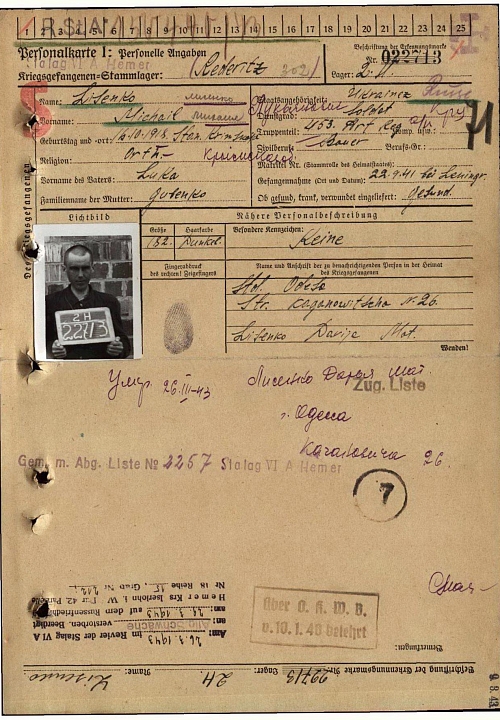 1 2 3 4 5 6 7 8 9 10 11 12 13 14 15 16 17 18 19 20 21 22 23 24 25
Personalkarte I: Personelle Angaben
Beschriftung der Erkennungsmarke
Nr. 022713
Stalag VI A Hemer
Kriegsgefangenen-Stammlager: Rederitz 302/
Lager: II H
Name: Lisenko Лисенко
Staatsangehörigkeit: Ukrainez
Vorname: Michail Михаил
Dienstgrad: Soldat
Truppenteil: 453. Art. Reg. Komp. usw.:
Geburtstag und -ort: 16.10.1918
Zivilberuf: Bauer Berufs-Gr.:
Religion: Orth.
Matrikel Nr. (Stammrolle des Heimatstaates):
Vorname des Vaters: Luka
Gefangennahme (Ort und Datum): 22.9.41 bei Leningr.
Familienname der Mutter:
Ob gesund, krank, verwundet eingeliefert: gesund.
71
Des Kriegsgefangenen
Lichtbild
Nähere Personalbeschreibung
Größe
Haarfarbe
Besondere Kennzeichen:
182. Dunkel.
Keine
Fingerabdruck
des rechten! Zeigefingers
Name und Anschrift der zu benachrichtigenden Person in der Heimat
des Kriegsgefangenen
2H
22713
St. Odesa
Str. Kaganowitscha N. 26.
Lisenko Darija Mat.
Wenden!
Умр. 26.III-43
Лисенко Дарья мат.
Zug. Liste
г. Одеса
Кагановича 26.
Gem. m. Abg. Liste № 2257 Stalag VI A Hemer
7
Über O. K. W. B.
v. 10.1.40 belehrt
Bemerkungen:
Am: 26.3.1943
im Revier der Stalag VI A
an: Allg. Schwäche
verstorben, Beerdigt
am: 29.3.1943 auf dem Russenfriedh.
Hemer Krs Iserlohn i. W. Flur 42, Parzelle
Nr 18 Reihe
Beschriftung der Erkennungsmarke Nr. 22713 Lager: 2H Name: Lisenko